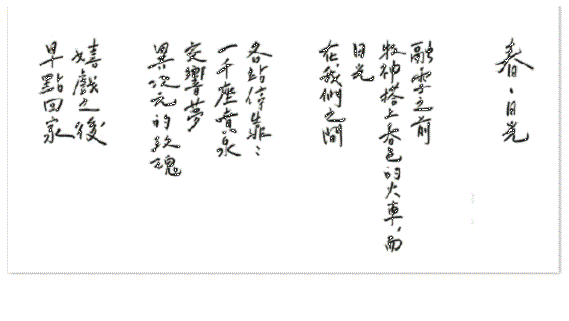 春・日光
融雪之前
牧神搭上春色的火車，而
日光
在我們之間
各站停靠：
一千座黃泉
交響夢
異次元的玫瑰
嬉戲之後
早點回家